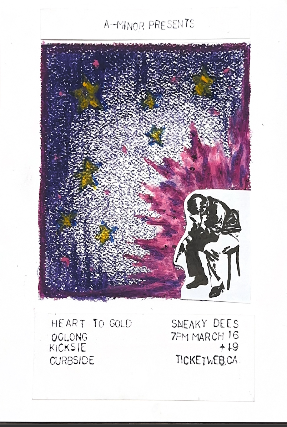 A-MINOR PRESENTS
HEART TO GOLD
OOLONG
KICKSIE
CURBSIDE
SNEAKY DEES
7PM MARCH 16
+19
TICKETWEB.CA